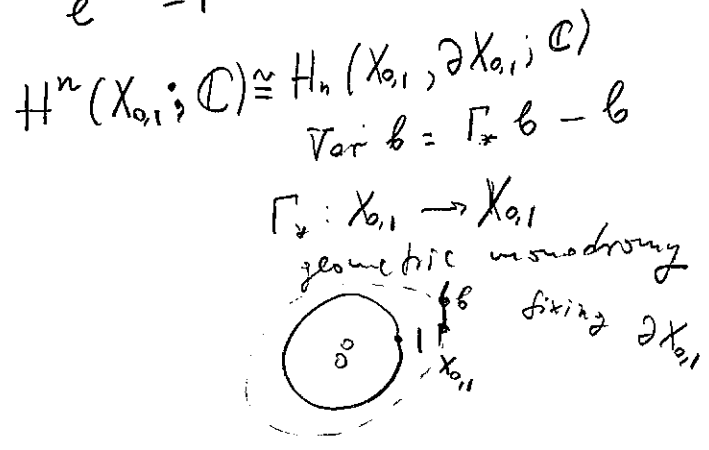 e -1
Hⁿ(X₀,₁; ℂ) ≅ Hₙ(X₀,₁, ∂X₀,₁; ℂ)
Var b = Γ_* b - b
Γ_* : X₀,₁ → X₀,₁
geometric monodromy
fixing ∂X₀,₁
b
1
0
X₀,₁